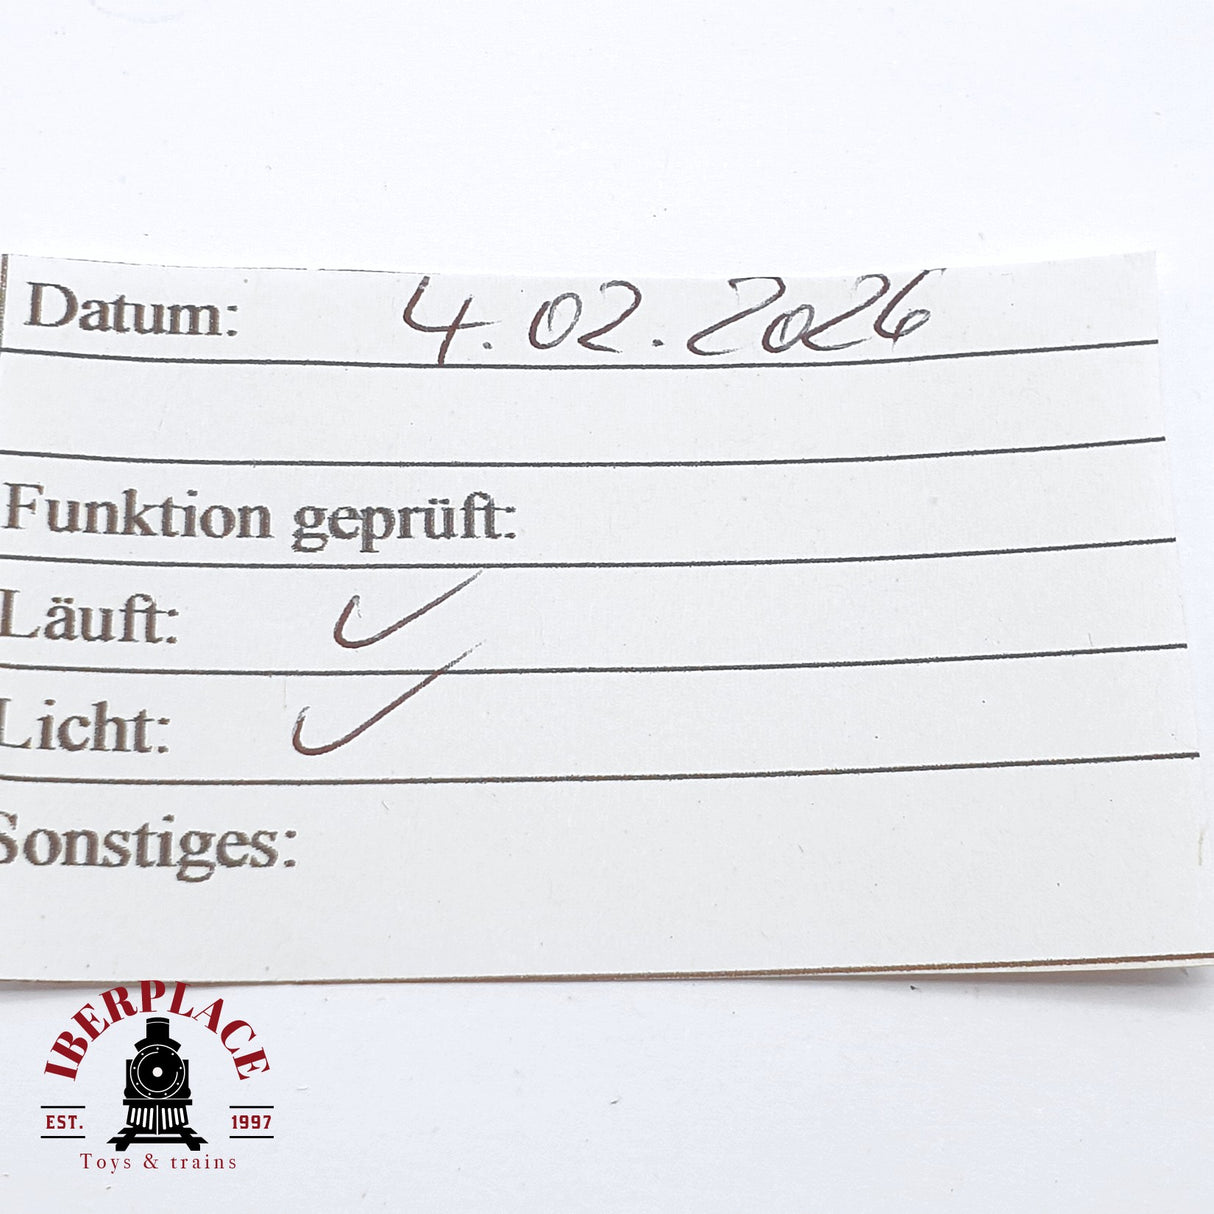 Datum: 4.02.2026
Funktion geprüft:
Läuft: ✓
Licht: ✓
Sonstiges:
IBERPLACE
EST. 1997
Toys & trains